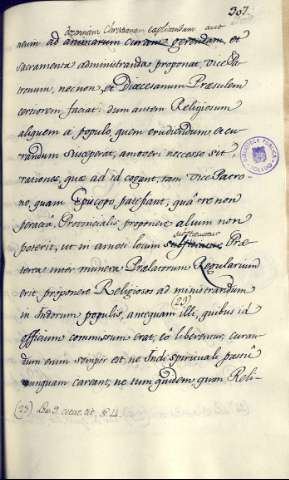 307.
doctrinam Christianam explicandam, aut
alium ad animarum curam gerendam, et
Sacramenta administranda proponat, Vice Pa
tronum, necnon, et Diœcesanum Præsulem
certiorem faciat: dum autem Religiosum
aliquem á populo, quem erudiendum et cu
randum susceperat, amoveri necesse sit
rationes, quæ ad id cogant, tam Vice Patro
no, quam Episcopo, patefiant, qua re non
peracta Provincialis proponere alium non
substituatur
poterit, ut in amoti locum Præ
terea inter munera Prælatorum Regularium
erit proponere Religiosos ad ministrandum
(23)
in Indorum populis, antequam illi, quibus id
officium commissum erat, eo liberentur, curan
dum enim semper est ne Indi spirituali pastu
nunquam careant, ne tum quidem, quum Reli-
(23) De 9. cit. § 4.